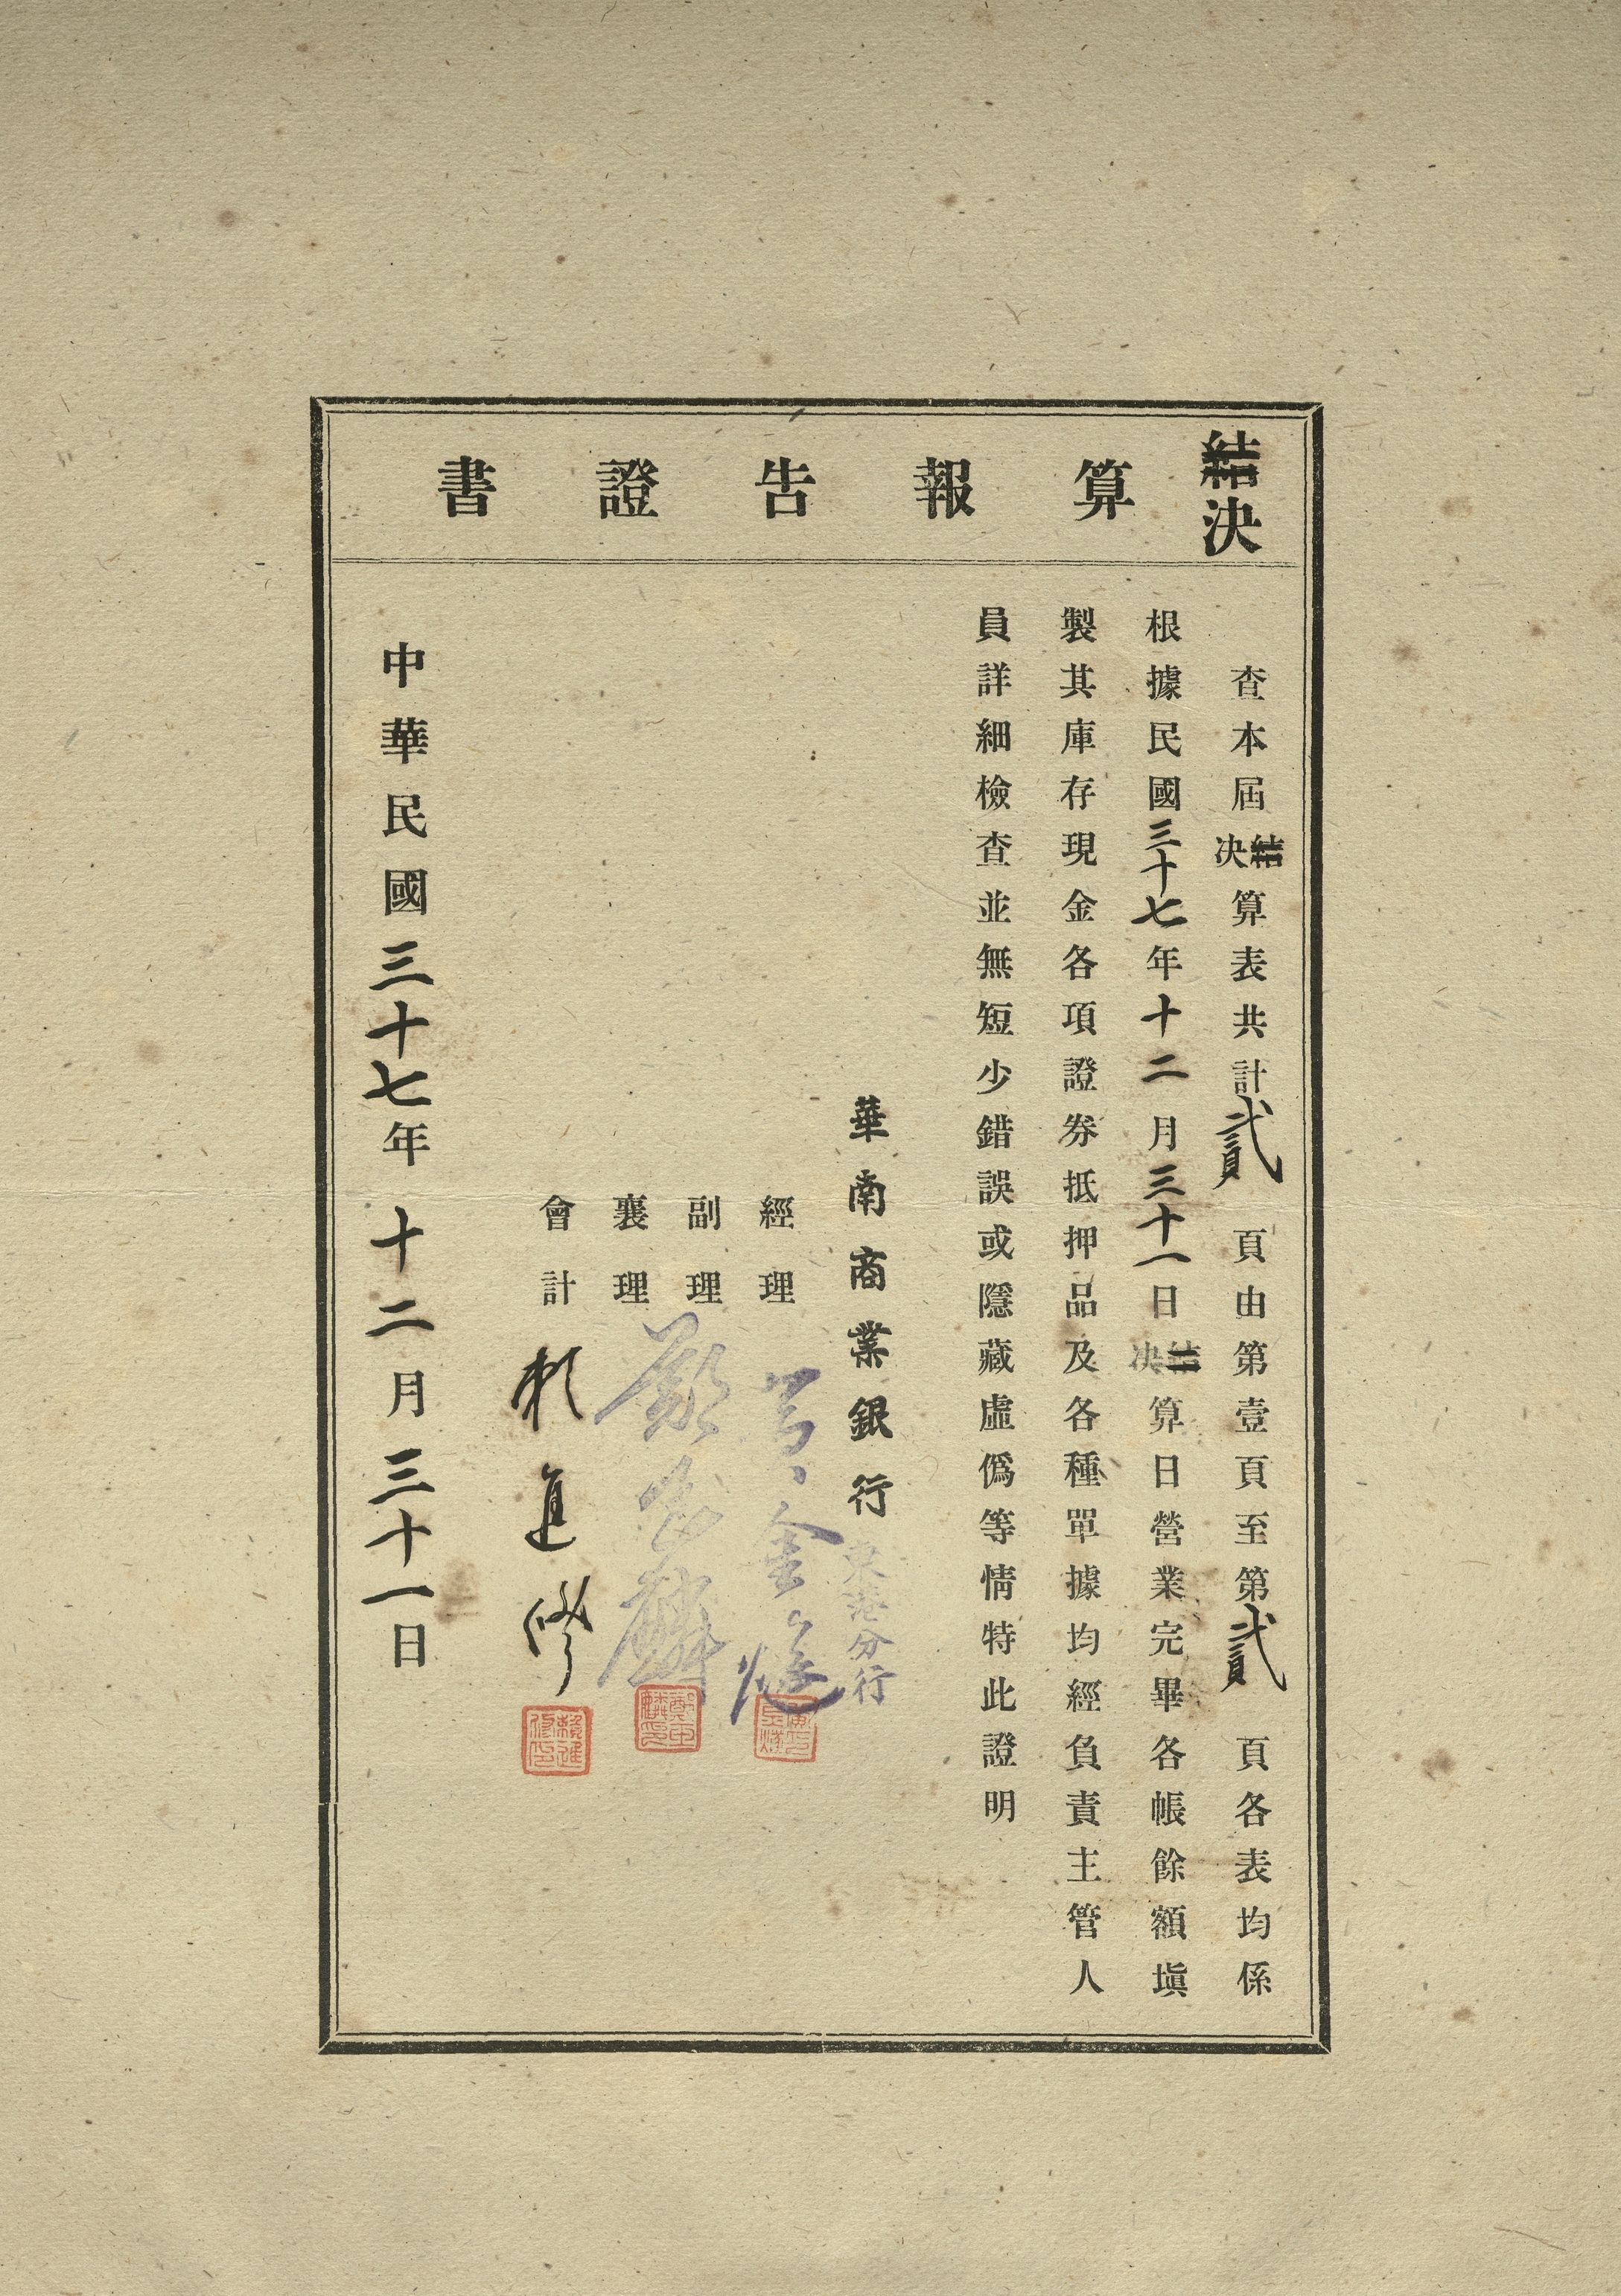 結決算報告證書
查本屆結決算表共計貳頁由第壹頁至第貳頁各表均係
根據民國三十七年十二月三十一日結決算日營業完畢各帳餘額塡
製其庫存現金各項證券抵押品及各種單據均經負責主管人
員詳細檢查並無短少錯誤或隱藏虛僞等情特此證明
華南商業銀行東港分行
經理
副理
襄理
會計賴進修
中華民國三十七年十二月三十一日
賴進修印